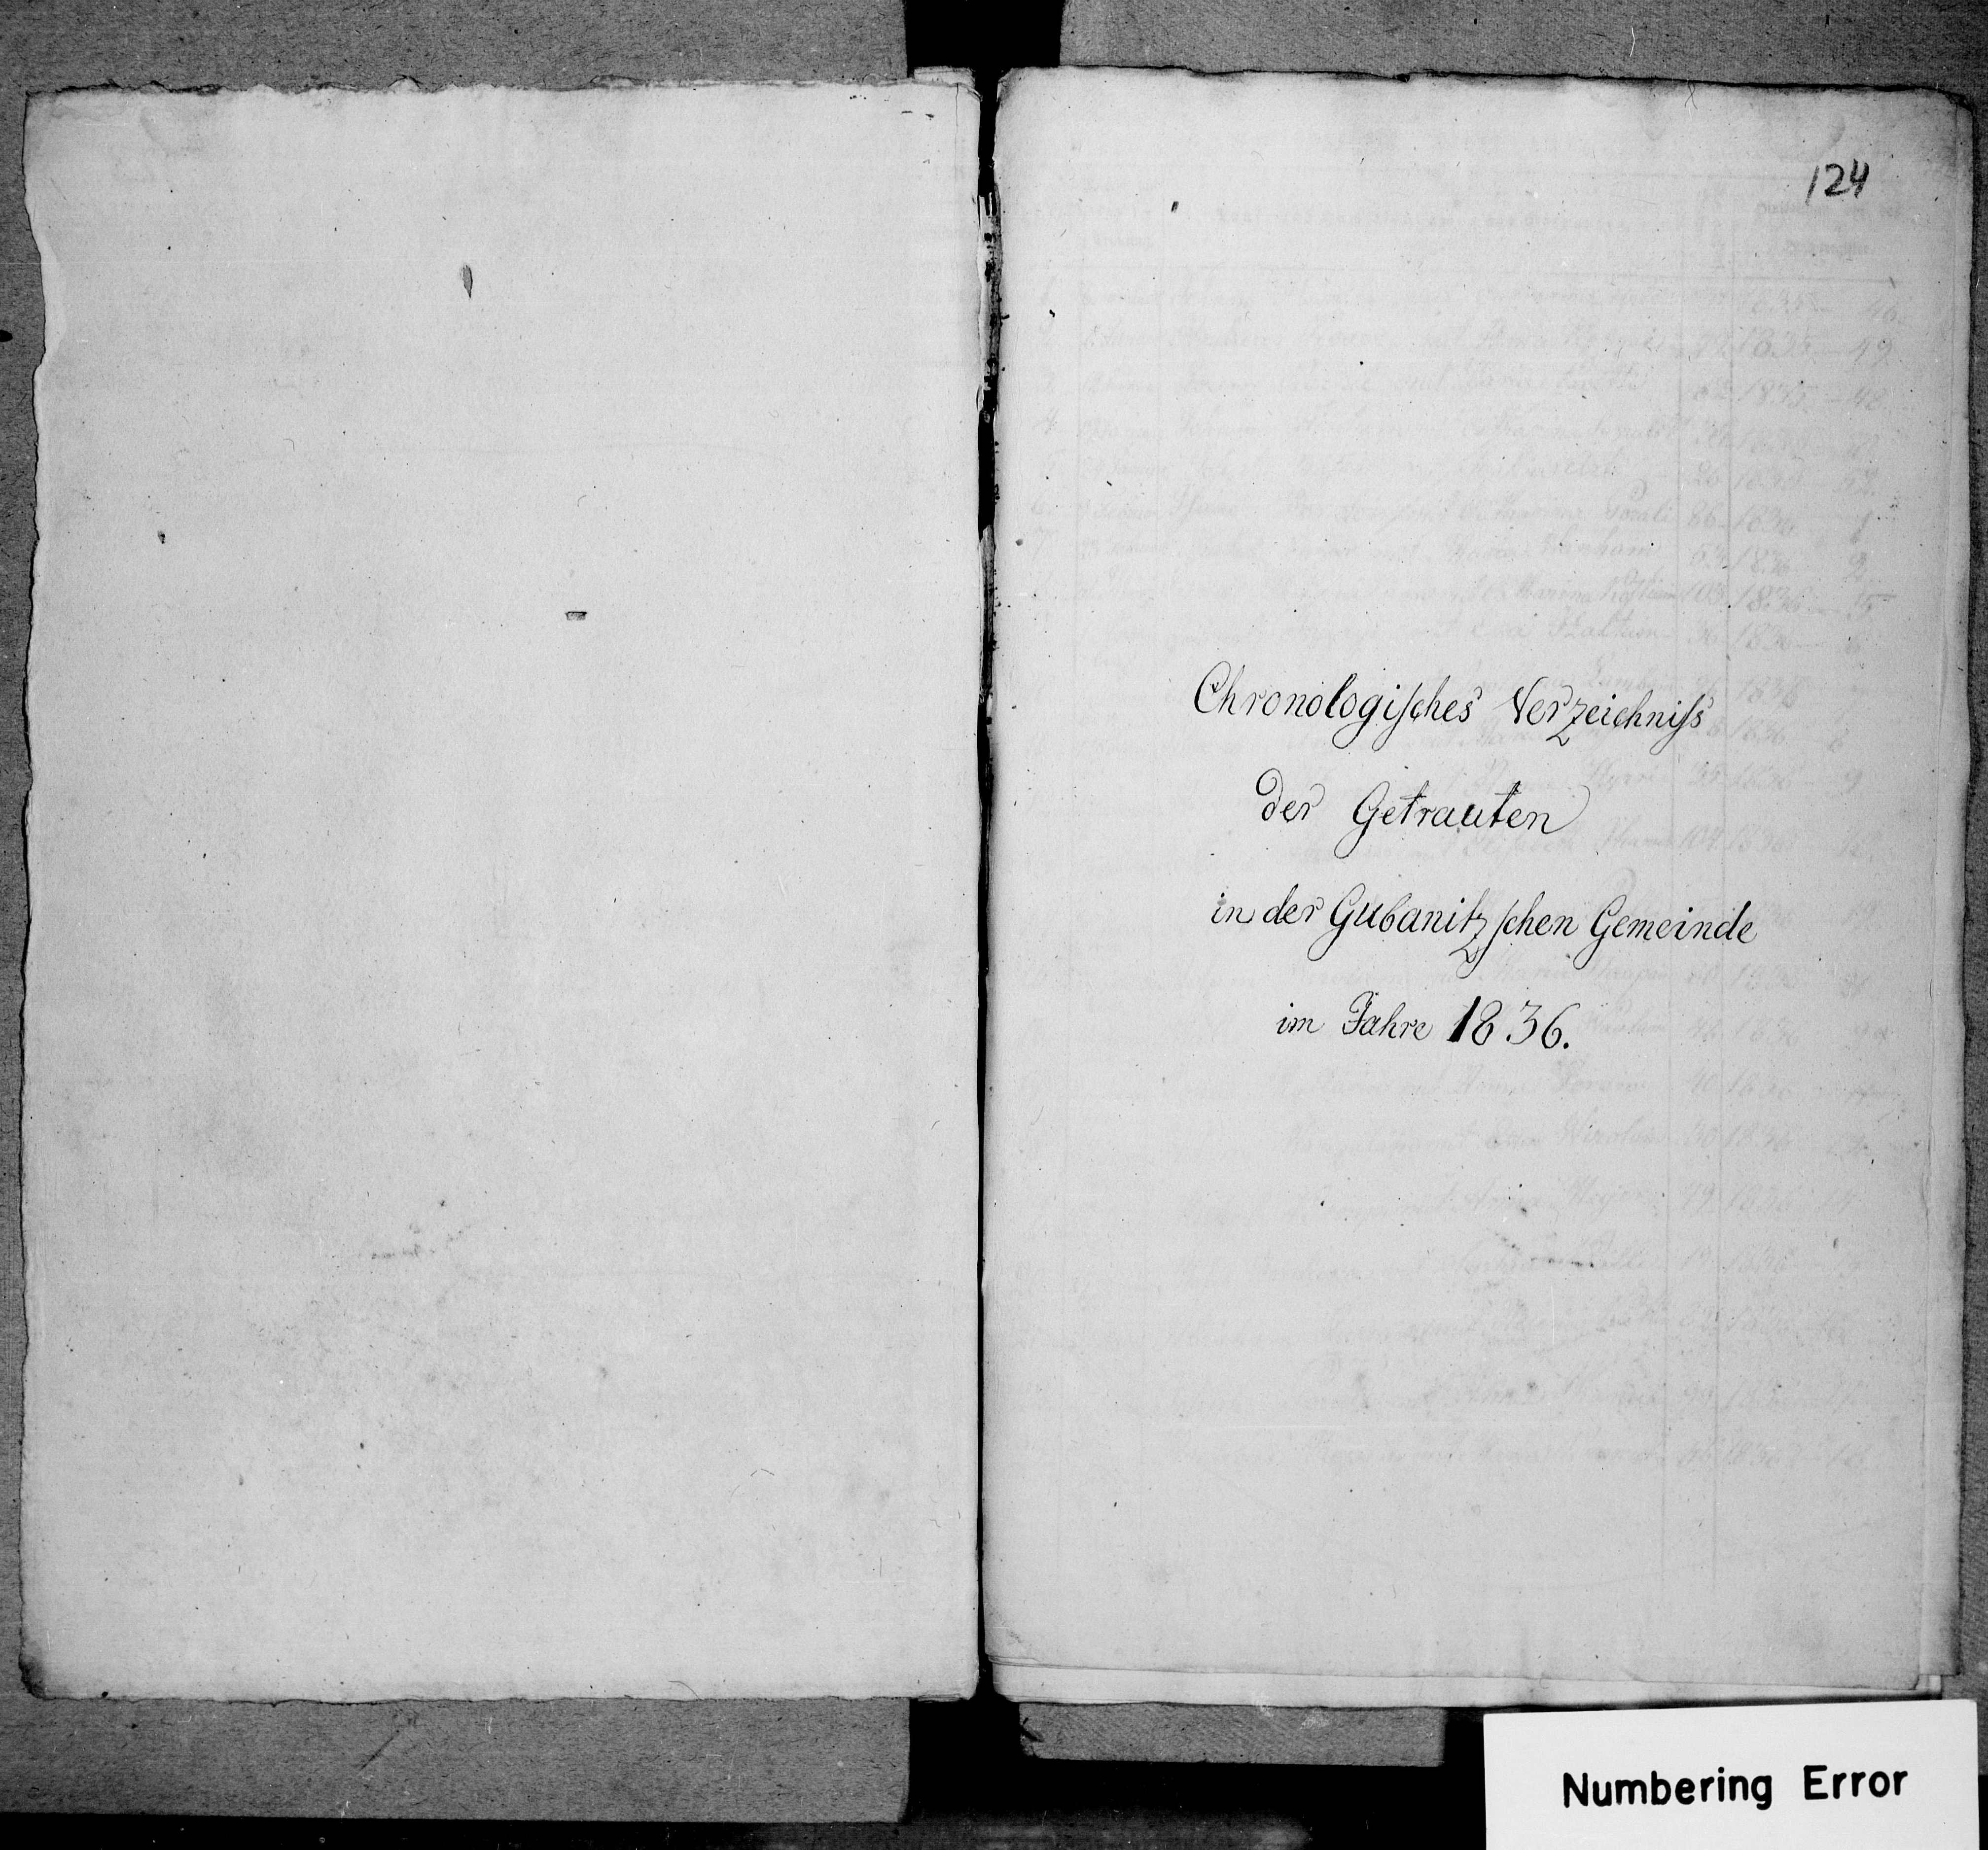 124
Chronologisches Verzeichniss
der Getrauten
in der Gubanitzschen Gemeinde
im Jahre 1836.
Numbering Error